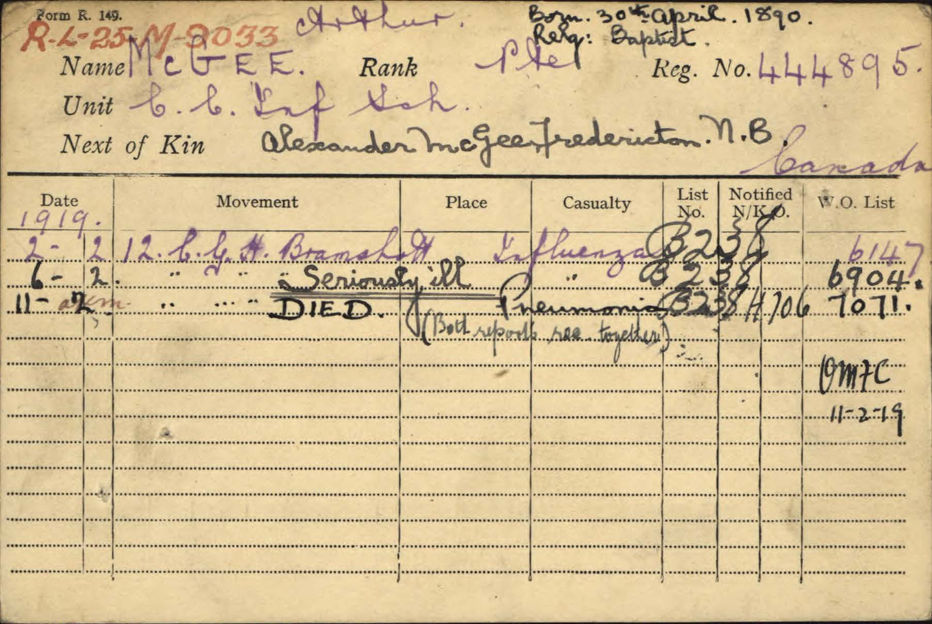 Form R. 149.
R-L-25-M-8033 Arthur. Born. 30th April. 1890.
Relig: Baptist.
Name McGEE. Rank Pte Reg. No. 444895.
Unit C. C. Inf Sch.
Next of Kin Alexander McGee, Fredericton. N.B.
Canada
Date Movement Place Casualty List No. Notified N/K.O. W.O. List
1919.
2- 2 12. C.G.H. Bramshott Influenza B238 6147
6- 2. " " " Seriously ill " B238 6904.
11- 2 " " " DIED. Pneumonia B238 H706 7071.
(Both reports rec. together)
OMFC
11-2-19